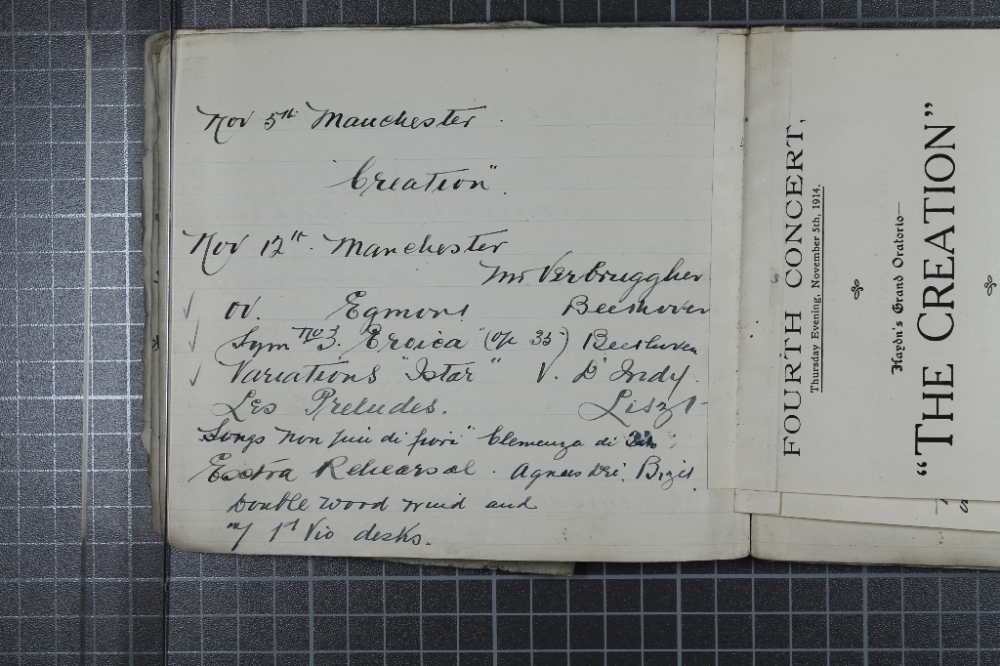 Nov 5th Manchester.
"Creation".
Nov 12th. Manchester
Mr Verbruggher
ov. Egmont Beethoven
Sym No 3. Eroica (op 35) Beethoven
Variations "Istar" V. D'Indy.
Les Preludes. Liszt
Songs "Non piu di fiori" Clemenza di
Extra Rehearsal. Agnus Dei. Bizet
Double wood wind and
1st Vio desks.
FOURTH CONCERT,
Thursday Evening, November 5th, 1914.
Haydn's Grand Oratorio—
"THE CREATION"